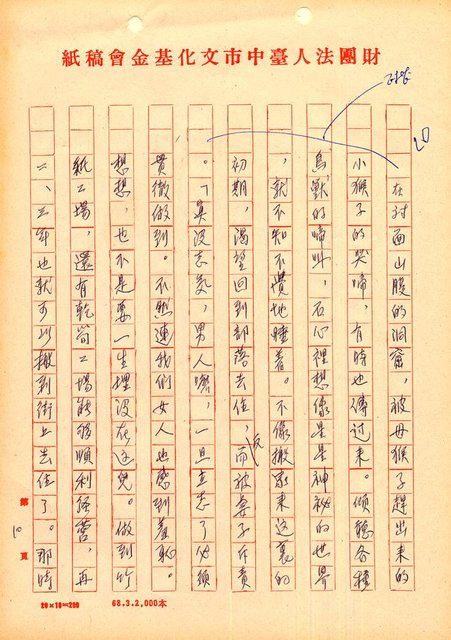 財團法人臺中市文化基金會稿紙
20
在對面山腹的洞窟，被母猴子趕出來的
小猴子的哭啼，有時也傳過來。傾聽各種
鳥獸的啼叫，在心裡想像是神祕的世界
，就不知不覺地睡着。不像搬家來這裏的
初期，渴望回到部落去住，而反被妻子斥責
。「真沒志氣，男人嘛，一旦立志了必須
貫徹做到。不然連我們女人也感到羞恥。
想想，也不是要一生埋沒在這兒。做到竹
紙工場，還有乾筍工場能够順利經營，再
二、三年也就可以搬到街上去住了。那時
第10頁
20×10=200
68.3.2,000本